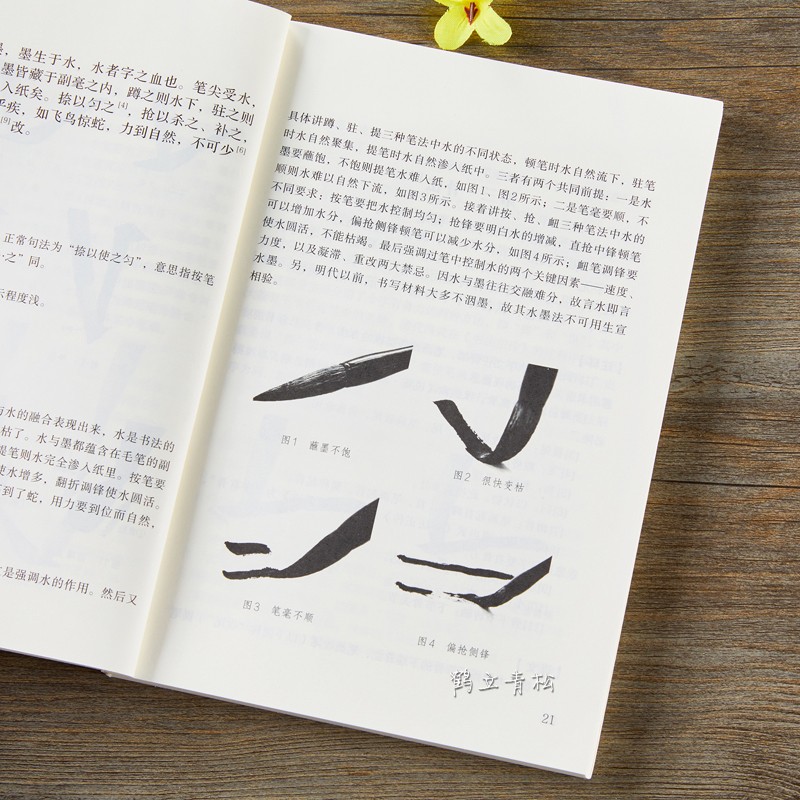 ，墨生于水，水者字之血也。笔尖受水，
墨皆藏于副毫之内，蹲之则水下，驻之则
入纸矣。捺以匀之[4]，抢以杀之、补之，
疾，如飞鸟惊蛇，力到自然，不可少[6]
[9]改。
正常句法为“捺以使之匀”，意思指按笔
之”同。
示程度浅。
与水的融合表现出来，水是书法的
枯了。水与墨都蕴含在毛笔的副
提笔则水完全渗入纸里。按笔要
使水增多，翻折调锋使水圆活。
到了蛇，用力要到位而自然，
是强调水的作用。然后又
具体讲蹲、驻、提三种笔法中水的不同状态，顿笔时水自然流下，驻笔
时水自然聚集，提笔时水自然渗入纸中。三者有两个共同前提：一是水
墨要蘸饱，不饱则提笔水难入纸，如图1、图2所示；二是笔毫要顺，不
顺则水难以自然下流，如图3所示。接着讲按、抢、衄三种笔法中水的
不同要求：按笔要把水控制均匀；抢锋要明白水的增减，直抢中锋顿笔
可以增加水分，偏抢侧锋顿笔可以减少水分，如图4所示；衄笔调锋要
使水圆活，不能枯竭。最后强调过笔中控制水的两个关键因素——速度、
力度，以及凝滞、重改两大禁忌。因水与墨往往交融难分，故言水即言
水墨。另，明代以前，书写材料大多不洇墨，故其水墨法不可用生宣
相验。
图1 蘸墨不饱
图2 很快变枯
图3 笔毫不顺
图4 偏抢侧锋
鹤立青松
21